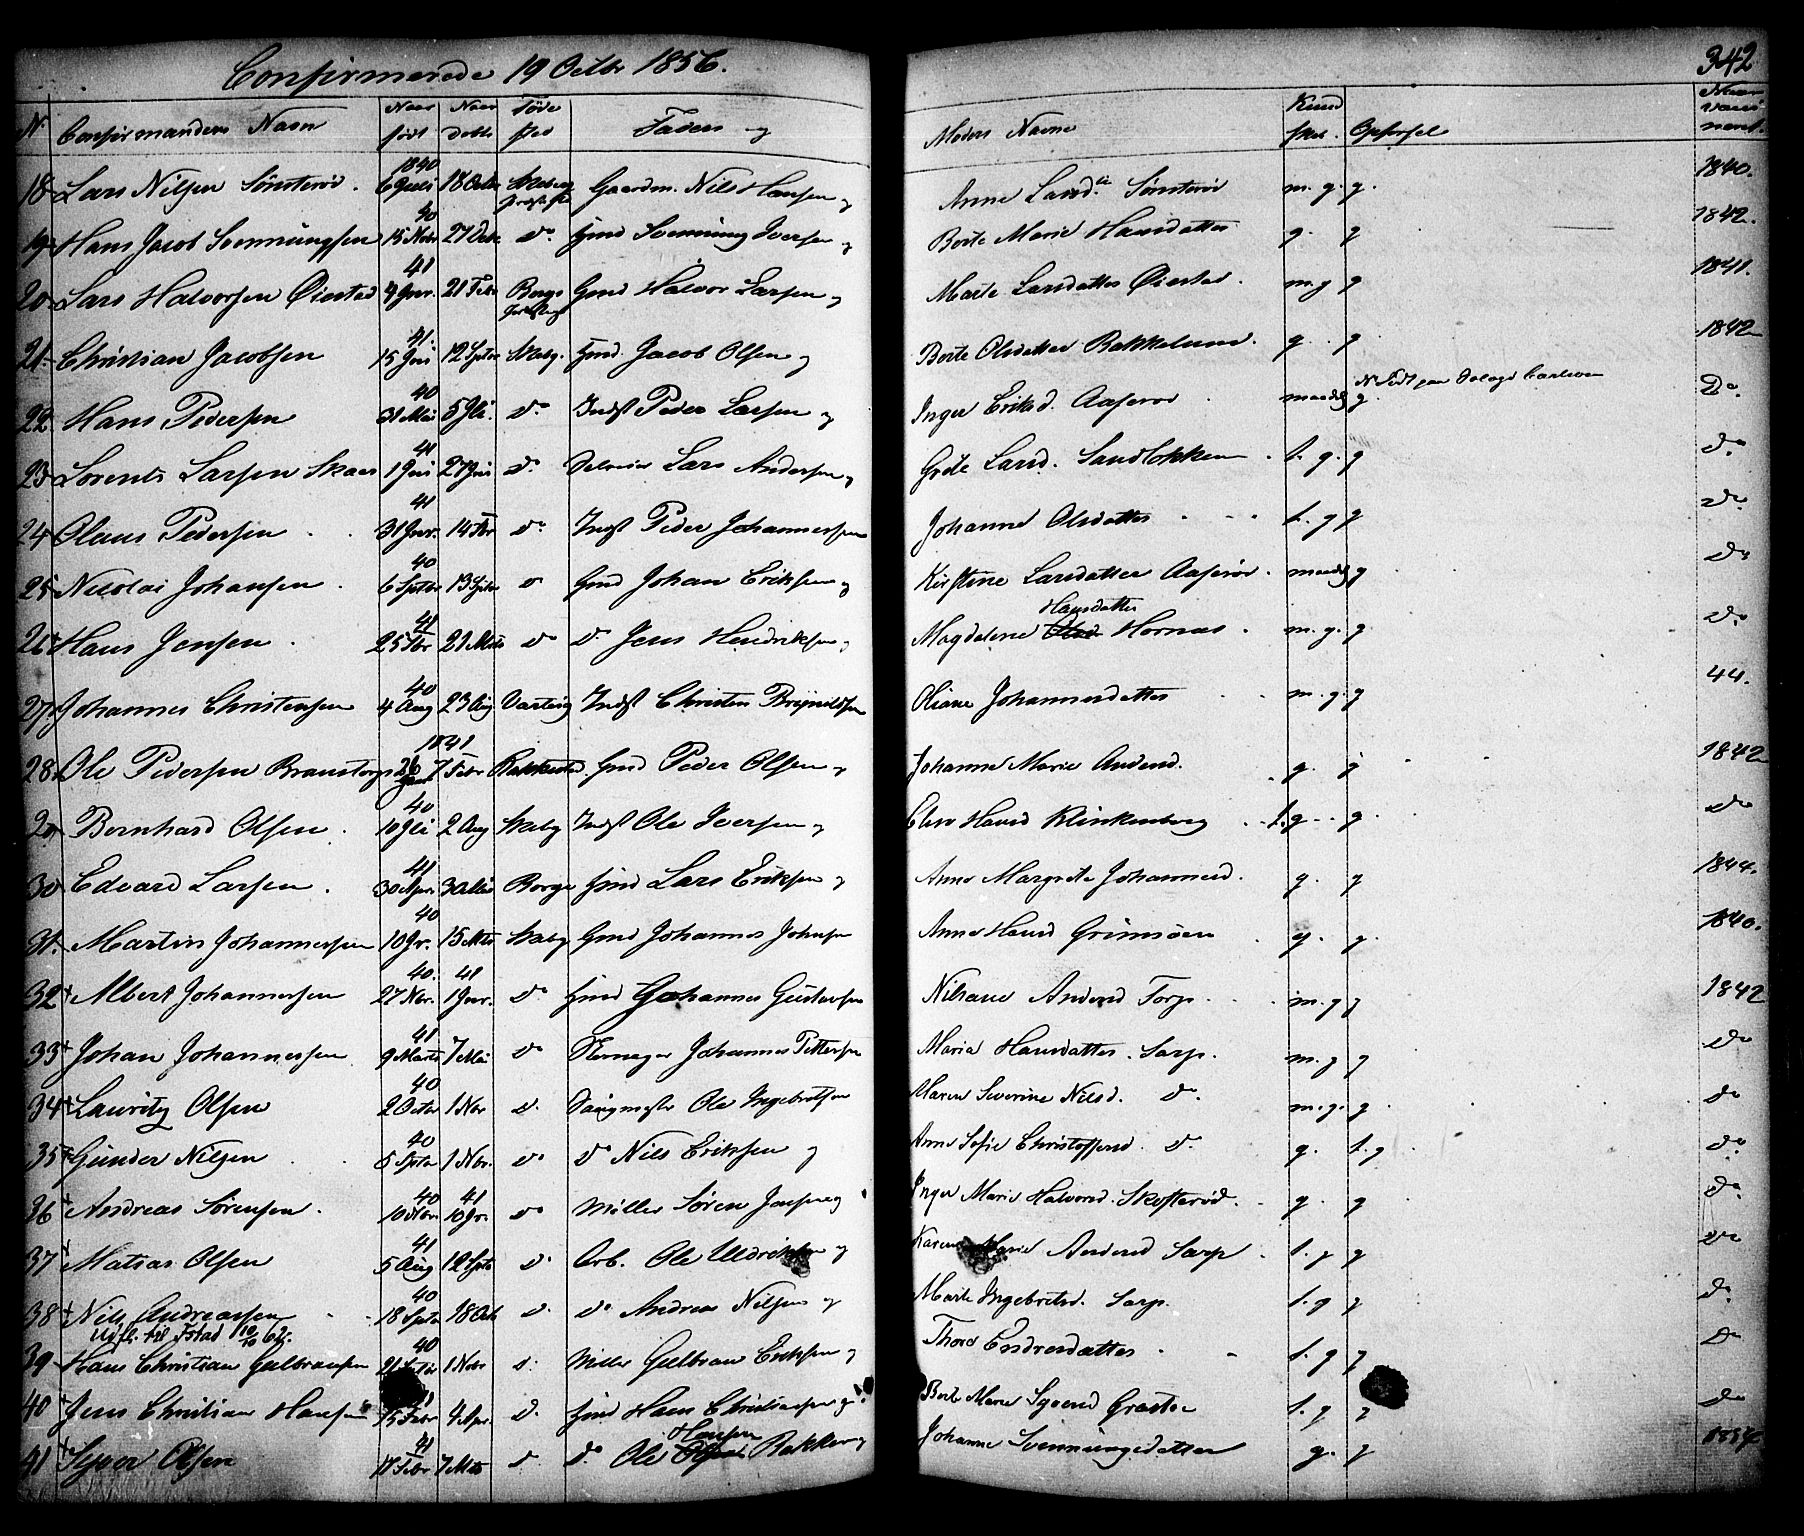 Confirmerede 19 Octbr 1856.
342
N. Confirmandens Navn Naar født Naar Døbte Føde sted Faders og Moders Navne Kund skab. Opførsel Naar vaccineret.
18 Lars Nilsen Sønsterød. 1840 6 Juli 18 Octbr Skebergs Præstegj. Gaardm. Nils Hansen og Anne Larsd. Sønsterød m. g. g. 1840.
19 Hans Jacob Svennungsen 40 15 Nobr 27 Debr do. Hmd Svennung Iversen og Berte Marie Hansdatter g. g 1842.
20 Lars Halvorsen Øiestad 41 9 Janr. 21 Febr Borge Gmd Halvor Larsen og Marte Larsdatter Øiestad. m. g g 1841.
21 Christian Jacobsen 41. 15 Juni 12 Septbr Skeb. Hmd. Jacob Olsen og Berte Olsdatter Bakkelund. g. g 1842
22 Hans Pedersen 40 31 Mai 5 Juli. do Indst Peder Larsen og Inger Eriksd. Aaserød maadelg g. Do.
23 Lorents Larsen Skaar 41 1 Juni 27 Juni do. Lars Andersen og Grete Larsd. Sandløkken t. g. g do
24 Olaus Pedersen 41 31 Janr. 14 Febr do Indst Peder Johannessen Johanne Olsdatter t. g g do
25 Nicolai Johansen 40 6 Septbr 13 Septbr do Gmd Johan Eriksen og Kirstine Larsdatter Aaserød. maadelg g do
26 Hans Jensen 41 25 Febr 21 Marts do do Jens Hendriksen og Magdalene Hansdatter Hornæs m. g. g do
27 Johannes Christensen 40 4 Aug 23 Aug Varteig Indst Christen Brynildsen Oliane Johannesdatter m. g. g 44.
28 Ole Pedersen Branstorp 1841 26 Janr 7 Febr Rakkestad Gmd Peder Olsen og Johanne Marie Andersd. g. g 1842
29 Bernhard Olsen 40 10 Juli 2 Aug Skeb Indst Ole Iversen og Elise Hansd Klinkenberg t. g g. do
30 Edvard Larsen 41 30 Apr. 30 Mai Borge Hmd Lars Eriksen og Anne Margrete Johannesd. g. g 1844.
31. Martin Johannessen 40 10 Jr. 15 Mts Skeb Gmd Johannes Johnsen Anne Hansd Grimsøen g. g. 1840.
32 Albert Johannessen 40. 27 Nov. 41 1 Janr. do Hmd Johannes Gustavsen Nilsane Andersd Torp m. g g 1842
33 Johan Johannessen 41 9 Marts 7 Mai do Skomager Johannes Pettersen Maria Hansdatter. Sarp. m. g g do
34 Lauritz Olsen 40 2 Octbr 1 Nov d. Saugmester Ole Ingebretsen Maren Severine Nilsd. do. m. g. g do
35 Gunder Nilsen 40 5 Septbr 1 Nov. do do Nils Eriksen og Anne Sofie Christoffersd. do. g. t. g do
36 Andreas Sørensen. 40 10 Nov. 41 10 Jr. do Møller Søren Jensen og Inger Marie Halvorsd. Skofterød. g g do
37 Matias Olsen 41 5 Aug 12 Septbr d. Arb. Ole og Karen Marie Andersd Sarp t. g g do
38 Nils Andreassen 40 18 Septbr 18 Octb d. do Andreas Nilsen og Marte Ingebretsd. Sarp. t. g g do
Udfl. til Istad 10/10 62.
39 Hans Christian Gulbransen 40 1 Nobr d. Møller Gulbran Eriksen og Thora Endresdatter t. g g do
40 Jens Christian Hansen 41 15 Febr 4 Apr. d. Hmd Hans Christiansen og Berte Marie Syversd t. g g do
41 Syver Olsen 41 17 Febr 7 Mts do do Ole Hansen Bakke og Johanne Svennungsdatter g. g